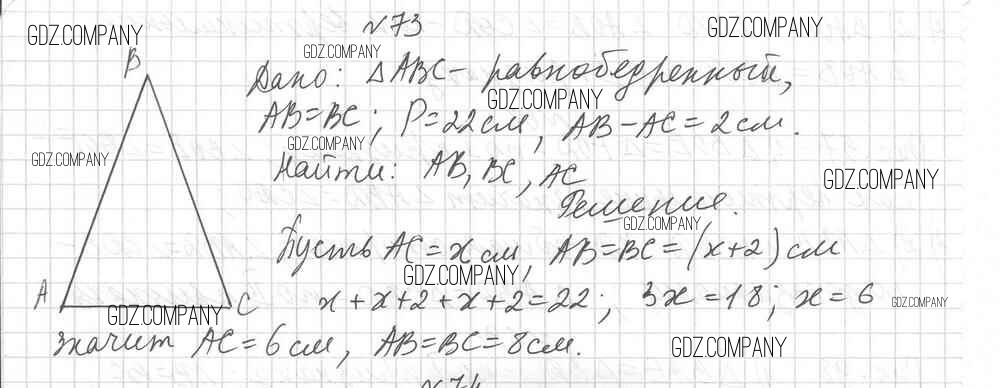 №73
GDZ.COMPANY
GDZ.COMPANY
GDZ.COMPANY
B
Дано: △ABC – равнобедренный,
GDZ.COMPANY
AB=BC; P=22см, AB–AC=2см.
GDZ.COMPANY
GDZ.COMPANY
Найти: AB, BC, AC
GDZ.COMPANY
Решение.
GDZ.COMPANY
Пусть AC=x см, AB=BC=(x+2) см
GDZ.COMPANY
A
C
x+x+2+x+2=22; 3x=18; x=6
GDZ.COMPANY
GDZ.COMPANY
значит AC=6см, AB=BC=8см.
GDZ.COMPANY
№74